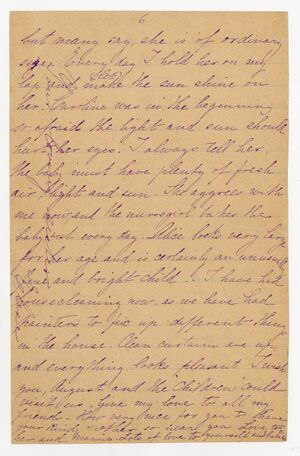 6
but many say, she is of ordinary
size. Every day I hold her on my
lap and let make the sun shine on
her. Caroline was in the beginning
so afraid the light and sun should
hurt her eyes. I always tell her
the baby must have plenty of fresh
air, light and sun. She aggrees with
me now, and the nursegirl takes the
baby out every day. Alice looks very large
for her age and is certainly an unusually
fine and bright child. I have had
housecleaning now, as we have had
painters to fix up different thing
in the house. Clean curtains are up
and everything looks pleasant. I wish
you, August and the Children could
visit us. Give my love to all my
friends. How very nice for you to have
your kind so near you. Love to
her and Mamie. Lots of love to yourself and